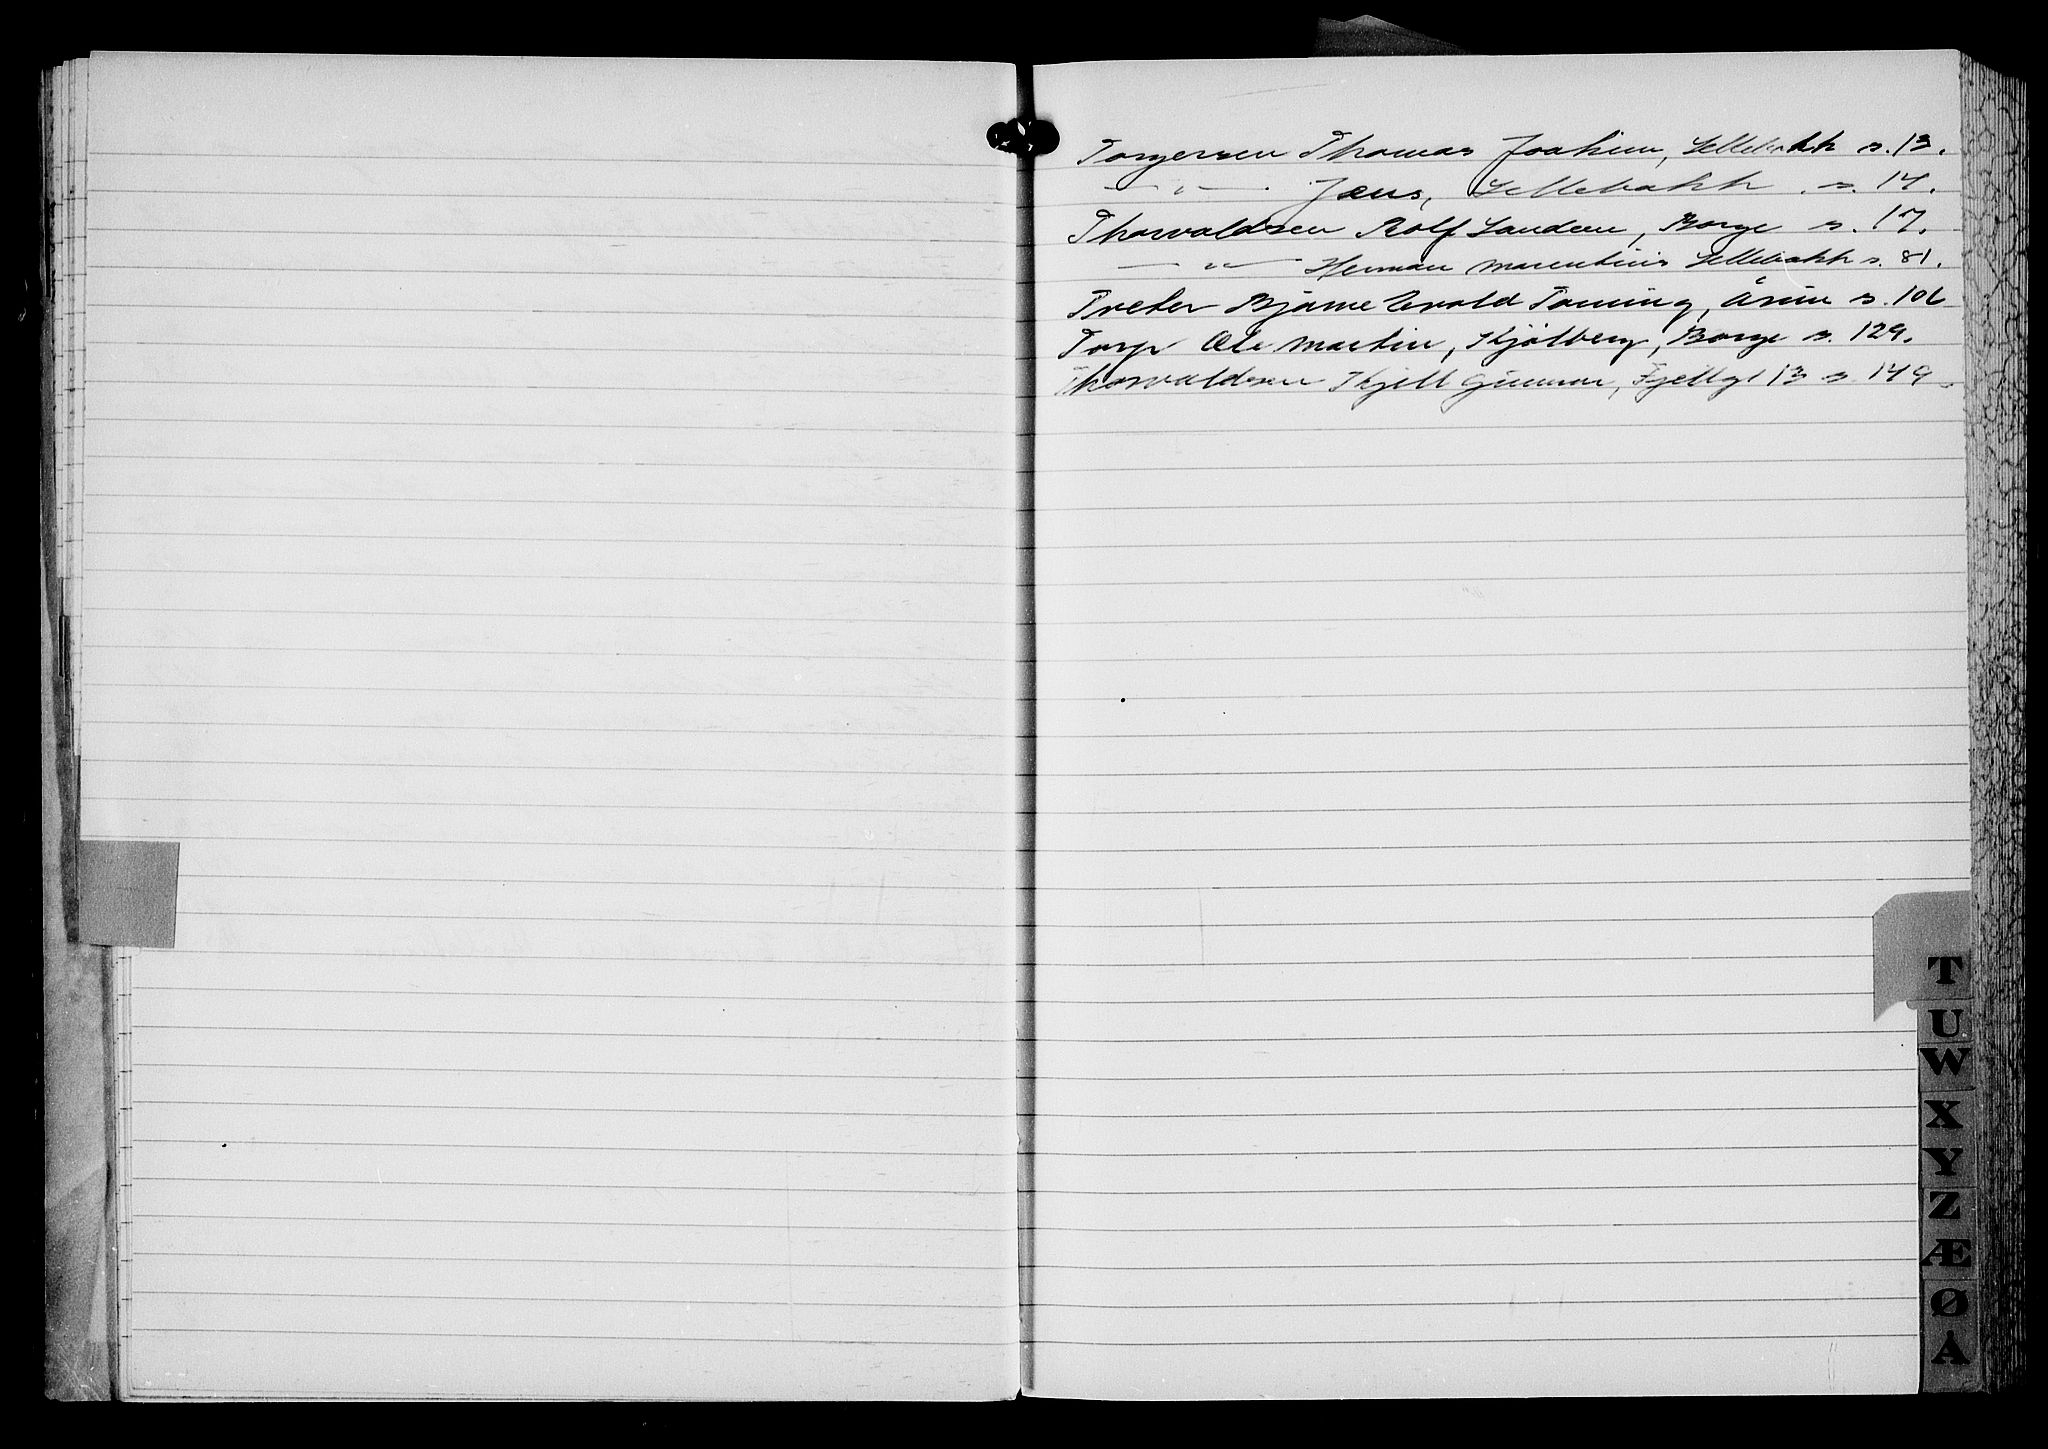 Torgersen Thomas Joakim, Sellebakk s. 13.
— " — Jens, Sellebakk. s. 14.
Thorvaldsen Rolf Sandem, Borge s. 17.
— " — Herman Marentius Sellebakk s. 81.
Tveter Bjarne Evald Tanning, Årum s. 106
Torp Ole Martin, Skjølberg, Borge s. 129.
Thorvaldsen Kjell Gunnar, Fjellgt 13 s. 149.
T
U
W
X
Y
Z
Æ
Ø
Å